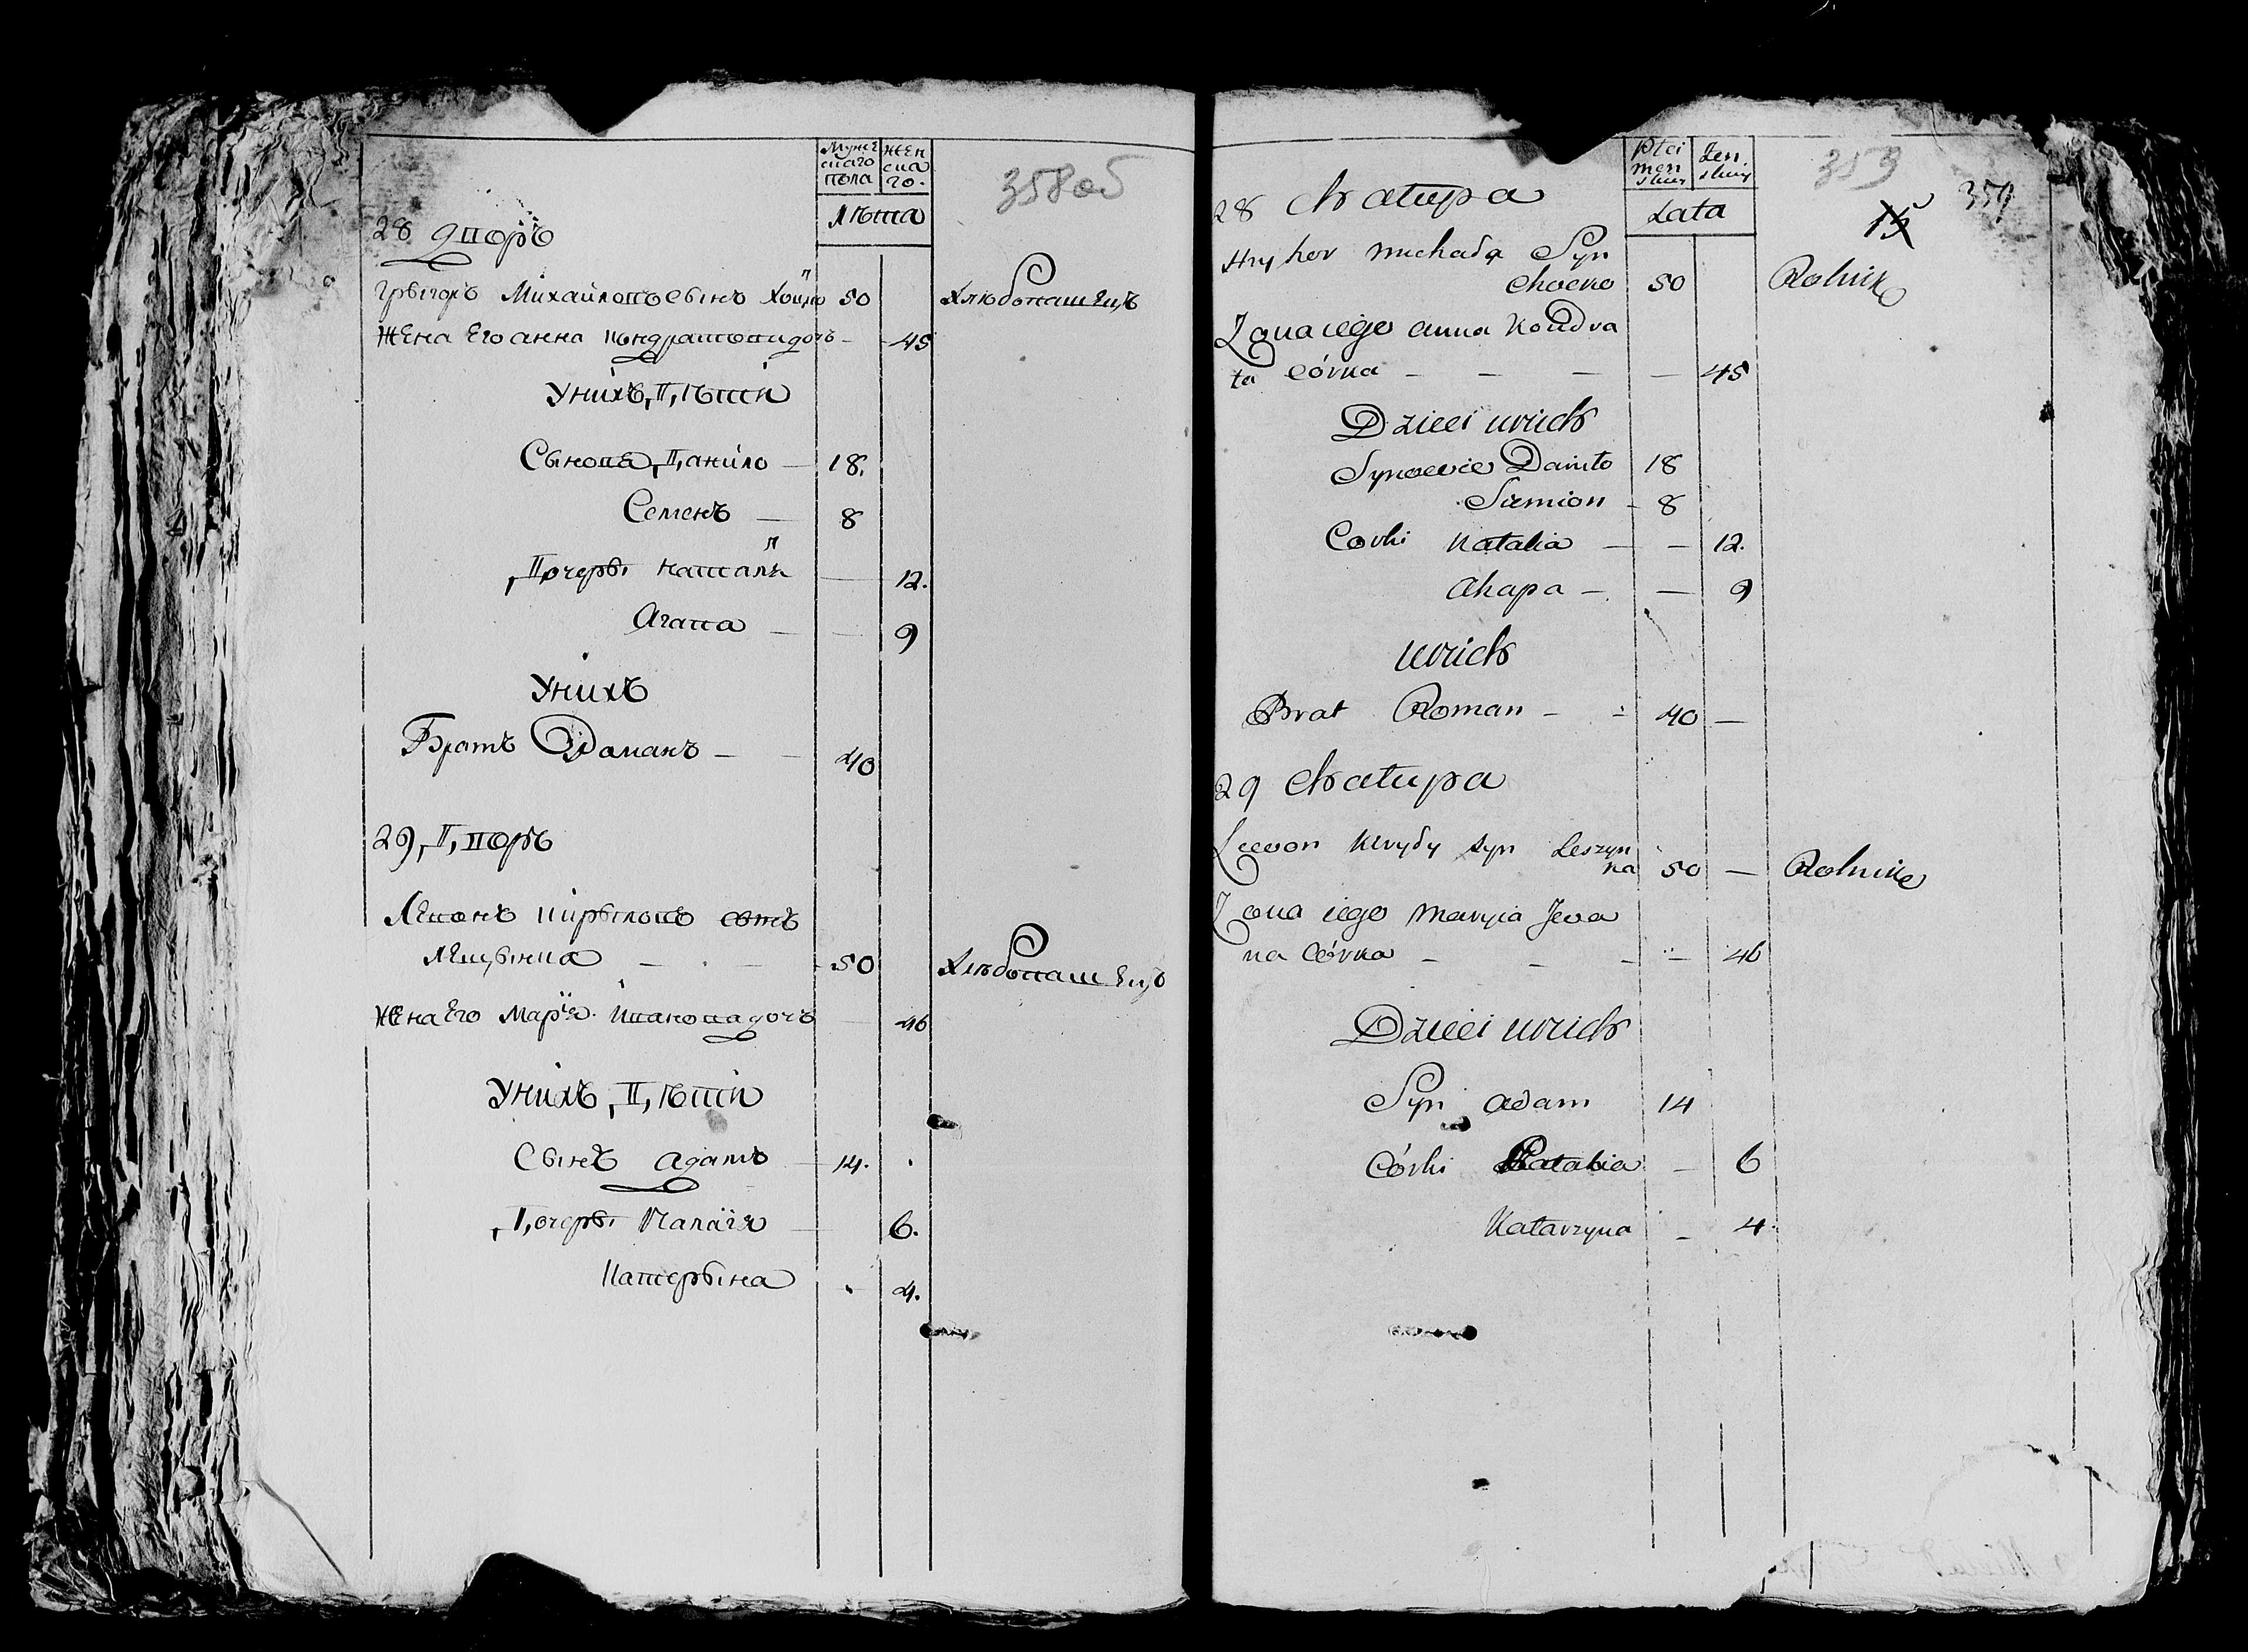 Мужескаго пола
Женскаго.
Лѣта
358об
28 Дворъ
Грыгоръ Михайловъ сынъ Хоцко 50 Хлюбопашецъ
Жена Его анна кондратовидочъ - 45
У нихъ Дѣти
Сынова Данило — 18.
Семенъ — 8
Дочеры наталя — 12.
Агапа — — 9
У нихъ
Братъ Романъ — — 40
29 Дворъ
Левонъ кирыловъ сынъ
Лещынка — . — 50 Хлѣбопашецъ
Жена Его Марія Иванова дочъ — 46
У нихъ Дѣти
Сынъ адамъ — 14.
Дочеры Палагя — 6.
катерына . 4.
Płci męnskiey
Żenskiey
Lata
353
15
359
28 Chatupa
Hryhor Michada Syn
Chocko 50 Rolnik
Zona iego anna Kondra
ta córka — — — — 45
Dzieci urich
Synowie Daniło 18
Siemion - 8
Corki Natalia — — 12.
Ahapa — — 9
urich
Brat Roman — - 40 —
29 Chatupa
Lewon Kiryły syn Leszyn
ka 50 — Rolnik
Zona iego Maryia Jwa
na Córka — — — — 46
Dzieci urich
Syn adam 14
Córki Natalia — 6
Katarzyna — 4.